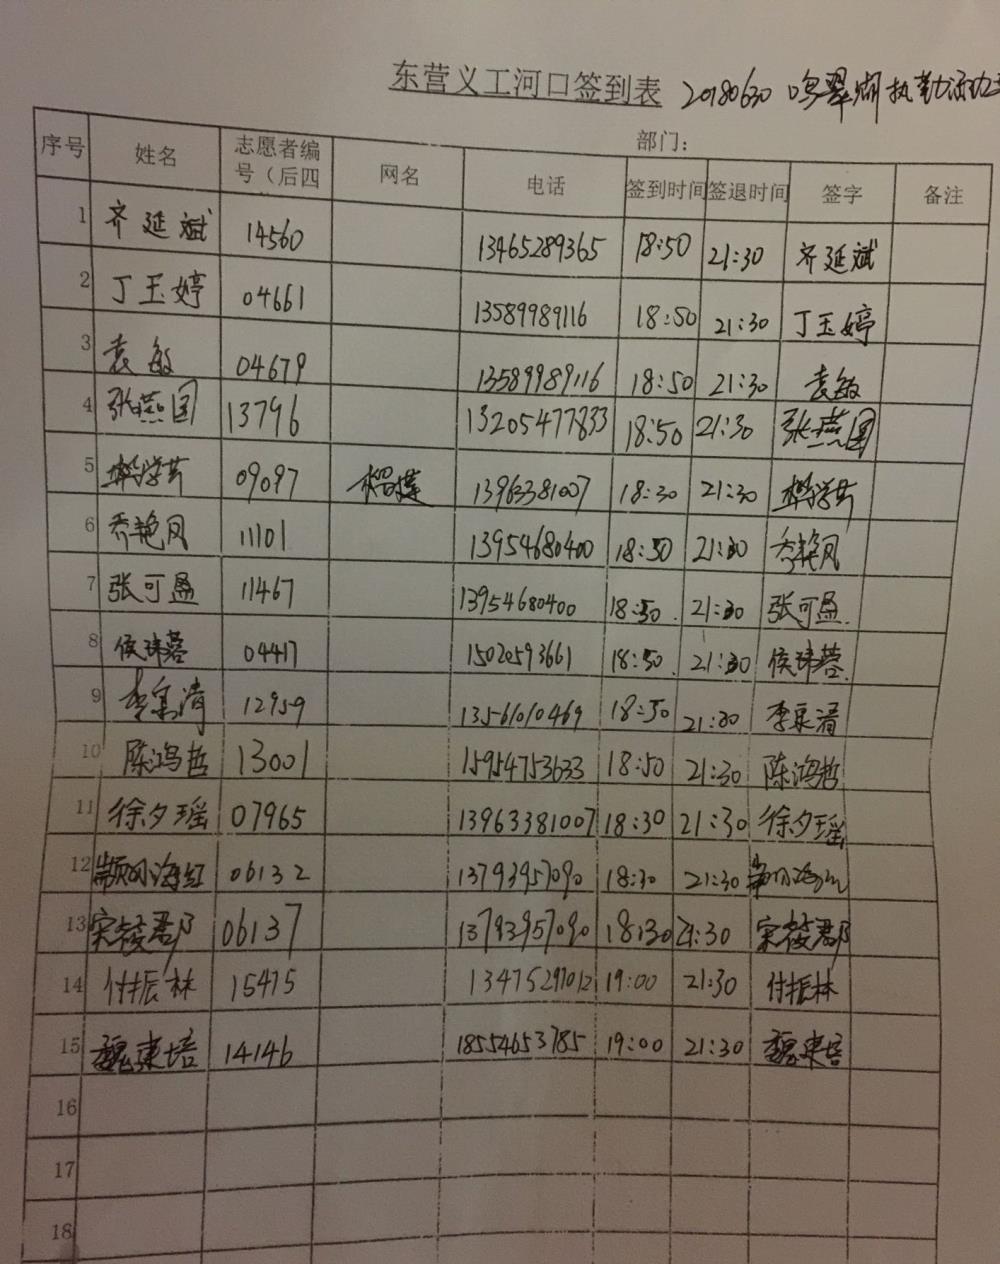 东营义工河口签到表 20180630 鸣翠湖执勤活动
部门：
序号 姓名 志愿者编号（后四 网名 电话 签到时间 签退时间 签字 备注
1 齐延斌 14560 13465289365 18:50 21:30 齐延斌
2 丁玉婷 04661 13589989116 18:50 21:30 丁玉婷
3 袁敏 04679 13589989116 18:50 21:30 袁敏
4 张燕国 13796 13205477833 18:50 21:30 张燕国
5 09097 13963381007 18:30 21:30
6 乔艳凤 11101 13954680400 18:50 21:30 乔艳凤
7 张可盈 11467 13954680400 18:50 21:30 张可盈
8 侯玮蓉 04417 15020593661 18:50 21:30 侯玮蓉
9 李泉清 12959 13561010469 18:50 21:30 李泉清
10 陈鸿哲 13001 15954753633 18:50 21:30 陈鸿哲
11 徐夕瑶 07965 13963381007 18:30 21:30 徐夕瑶
12 海红 06132 13793957090 18:30 21:30
13 宋筱郡 06137 13793957090 18:30 21:30 宋筱郡
14 付振林 15475 13475297012 19:00 21:30 付振林
15 魏建培 14146 18554653785 19:00 21:30 魏建培
16
17
18